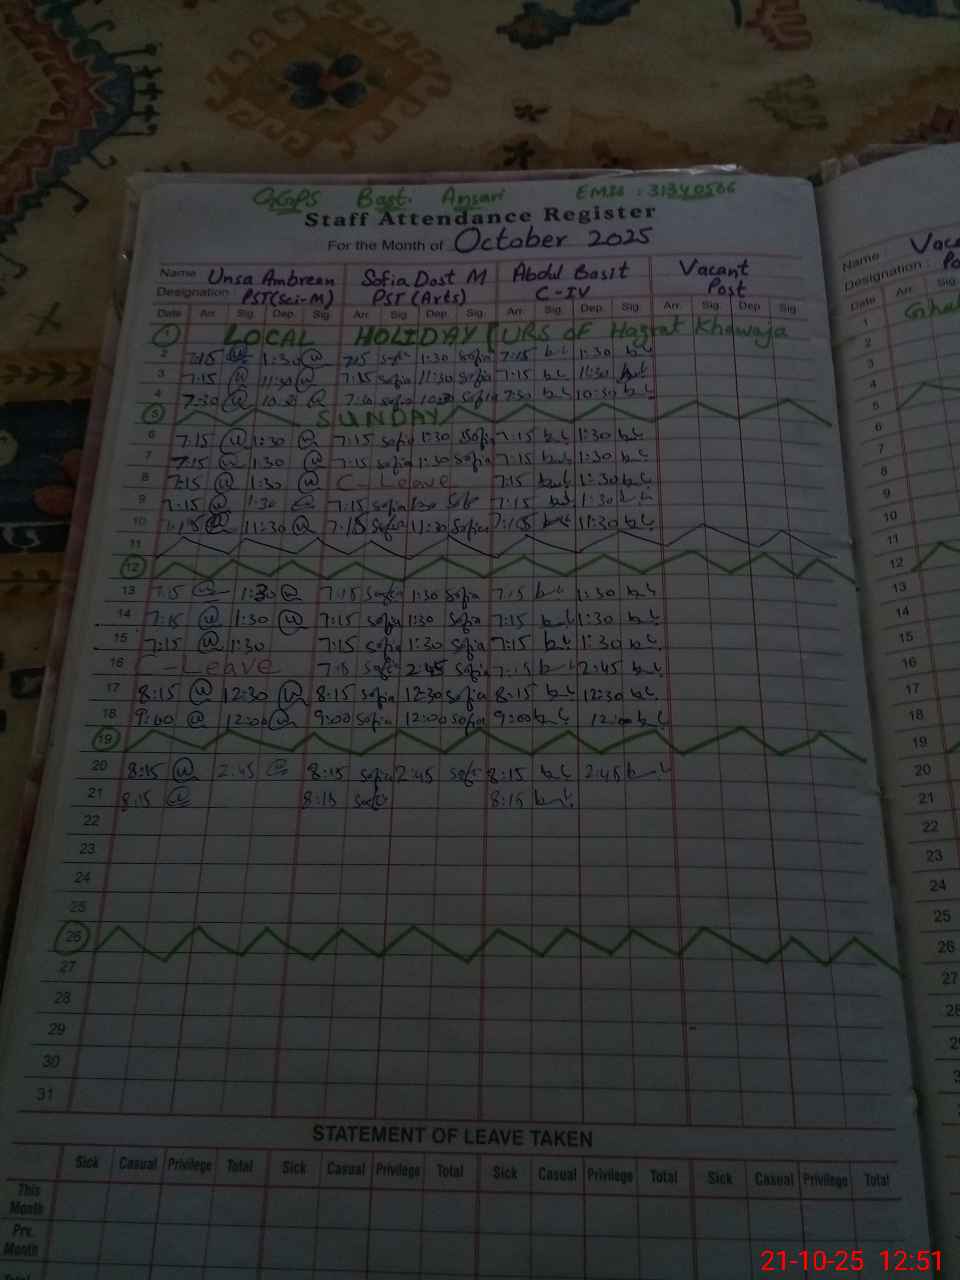 GGPS Bast. Ansari EMIS : 31340566
Staff Attendance Register
For the Month of October 2025
Name Unsa Ambreen Sofia Dost M Abdul Basit Vacant
Designation PST(Sci-M) PST (Arts) C-IV Post
Date Arr. Sig. Dep. Sig. Arr. Sig. Dep. Sig. Arr. Sig. Dep. Sig. Arr. Sig. Dep. Sig.
1 LOCAL HOLIDAY (URS of Hazrat Khawaja
2 7:15 1:30 7:15 sofia 1:30 sofia 7:15 1:30
3 7:15 11:30 7:15 sofia 11:30 sofia 7:15 11:30
4 7:30 10:30 7:30 sofia 10:30 sofia 7:30 10:30
5 SUNDAY
6 7:15 1:30 7:15 sofia 1:30 sofia 7:15 1:30
7 7:15 1:30 7:15 sofia 1:30 sofia 7:15 1:30
8 7:15 1:30 C-Leave 7:15 1:30
9 7:15 1:30 7:15 sofia 1:30 7:15 1:30
10 7:15 11:30 7:15 sofia 11:30 sofia 7:15 11:30
11
12
13 7:15 1:30 7:15 sofia 1:30 sofia 7:15 1:30
14 7:15 1:30 7:15 sofia 1:30 sofia 7:15 1:30
15 7:15 1:30 7:15 sofia 1:30 sofia 7:15 1:30
16 C-Leave 7:15 sofia 2:45 sofia 7:15 2:45
17 8:15 12:30 8:15 sofia 12:30 sofia 8:15 12:30
18 9:00 12:00 9:00 sofia 12:00 sofia 9:00 12:00
19
20 8:15 2:45 8:15 sofia 2:45 sofia 8:15 2:45
21 8:15 8:15 sofia 8:15
22
23
24
25
26
27
28
29
30
31
STATEMENT OF LEAVE TAKEN
Sick Casual Privilege Total Sick Casual Privilege Total Sick Casual Privilege Total Sick Casual Privilege Total
This Month
Prv. Month
Name
Designation :
Date Arr.
1
2
3
4
5
6
7
8
9
10
11
12
13
14
15
16
17
18
19
20
21
22
23
24
25
26
27
21-10-25 12:51